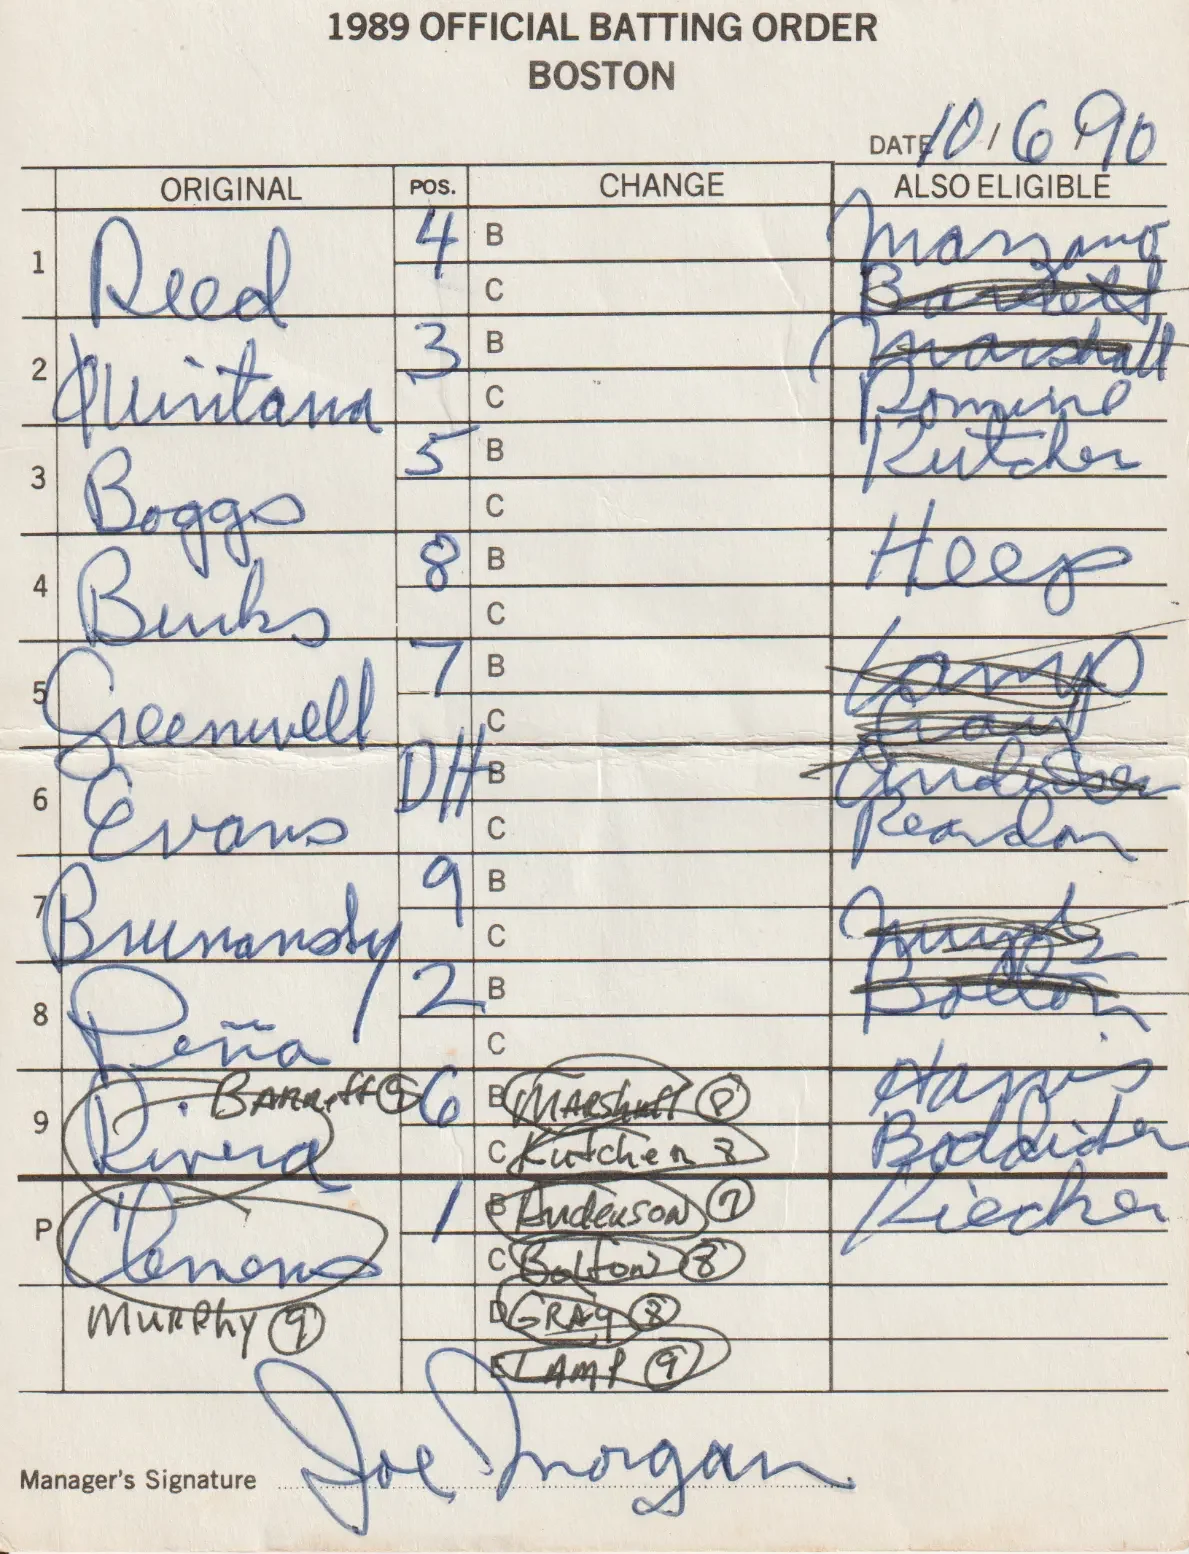 1989 OFFICIAL BATTING ORDER
BOSTON
DATE 10/6 90
ORIGINAL POS. CHANGE ALSO ELIGIBLE
1 Reed 4 B Marzano
C Barrett
2 Quintana 3 B Marshall
C Romine
3 Boggs 5 B Kutcher
C
4 Burks 8 B Heep
C
5 Greenwell 7 B Lamp
C Gray
6 Evans DH B Anderson
C Reardon
7 Brunansky 9 B Murphy
C Bolton
8 Peña 2 B
C Harris
9 Rivera BARRETT 9 6 B MARSHALL 8 Boddicker
C Kutcher 8
P Clemens 1 B Anderson 7 Kiecker
C Bolton 8
MURPHY 9 D GRAY 8
E LAMP 9
Manager's Signature Joe Morgan